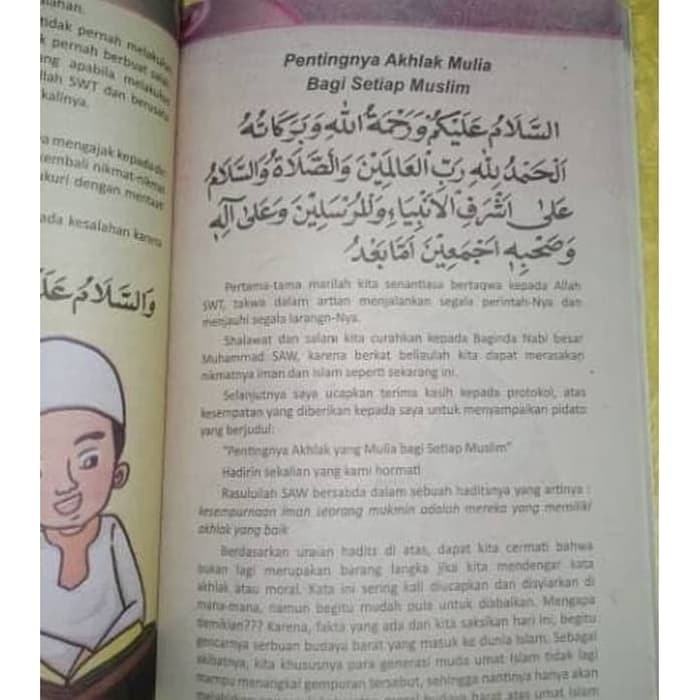 alahan.
tidak pernah melakukan
k pernah berbuat salah
ng apabila melakukan
llah SWT dan berusaha
kalinya.
a mengajak kepada diri
embali nikmat-nikmat
kuri dengan mentaati
ada kesalahan karena
وَالسَّلَامُ عَلَ
Pentingnya Akhlak Mulia
Bagi Setiap Muslim
اَلسَّلَامُ عَلَيْكُمْ وَرَحْمَةُ اللهِ وَبَرَكَاتُهُ
اَلْحَمْدُ لِلهِ رَبِّ الْعَالَمِيْنَ وَالصَّلَاةُ وَالسَّلَامُ
عَلَى اَشْرَفِ الْاَنْبِيَاءِ وَالْمُرْسَلِيْنَ وَعَلَى اٰلِهِ
وَصَحْبِهِ اَجْمَعِيْنَ اَمَّا بَعْدُ
Pertama-tama marilah kita senantiasa bertaqwa kepada Allah
SWT, takwa dalam artian menjalankan segala perintah-Nya dan
menjauhi segala larangn-Nya.
Shalawat dan salam kita curahkan kepada Baginda Nabi besar
Muhammad SAW, karena berkat beliaulah kita dapat merasakan
nikmatnya iman dan Islam seperti sekarang ini.
Selanjutnya saya ucapkan terima kasih kepada protokol, atas
kesempatan yang diberikan kepada saya untuk menyampaikan pidato
yang berjudul:
"Pentingnya Akhlak yang Mulia bagi Setiap Muslim"
Hadirin sekalian yang kami hormati
Rasulullah SAW bersabda dalam sebuah haditsnya yang artinya :
kesempurnaan iman seorang mukmin adalah mereka yang memiliki
akhlak yang baik
Berdasarkan uraian hadits di atas, dapat kita cermati bahwa
bukan lagi merupakan barang langka jika kita mendengar kata
akhlak atau moral. Kata ini sering kali diucapkan dan disyiarkan di
mana-mana, namun begitu mudah pula untuk diabaikan. Mengapa
demikian??? Karena, fakta yang ada dan kita saksikan hari ini, begitu
gencarnya serbuan budaya barat yang masuk ke dunia Islam. Sebagai
akibatnya, kita khususnya para generasi muda umat Islam tidak lagi
mampu menangkal gempuran tersebut, sehingga nantinya hanya akan
budaya barat atas umat Islam